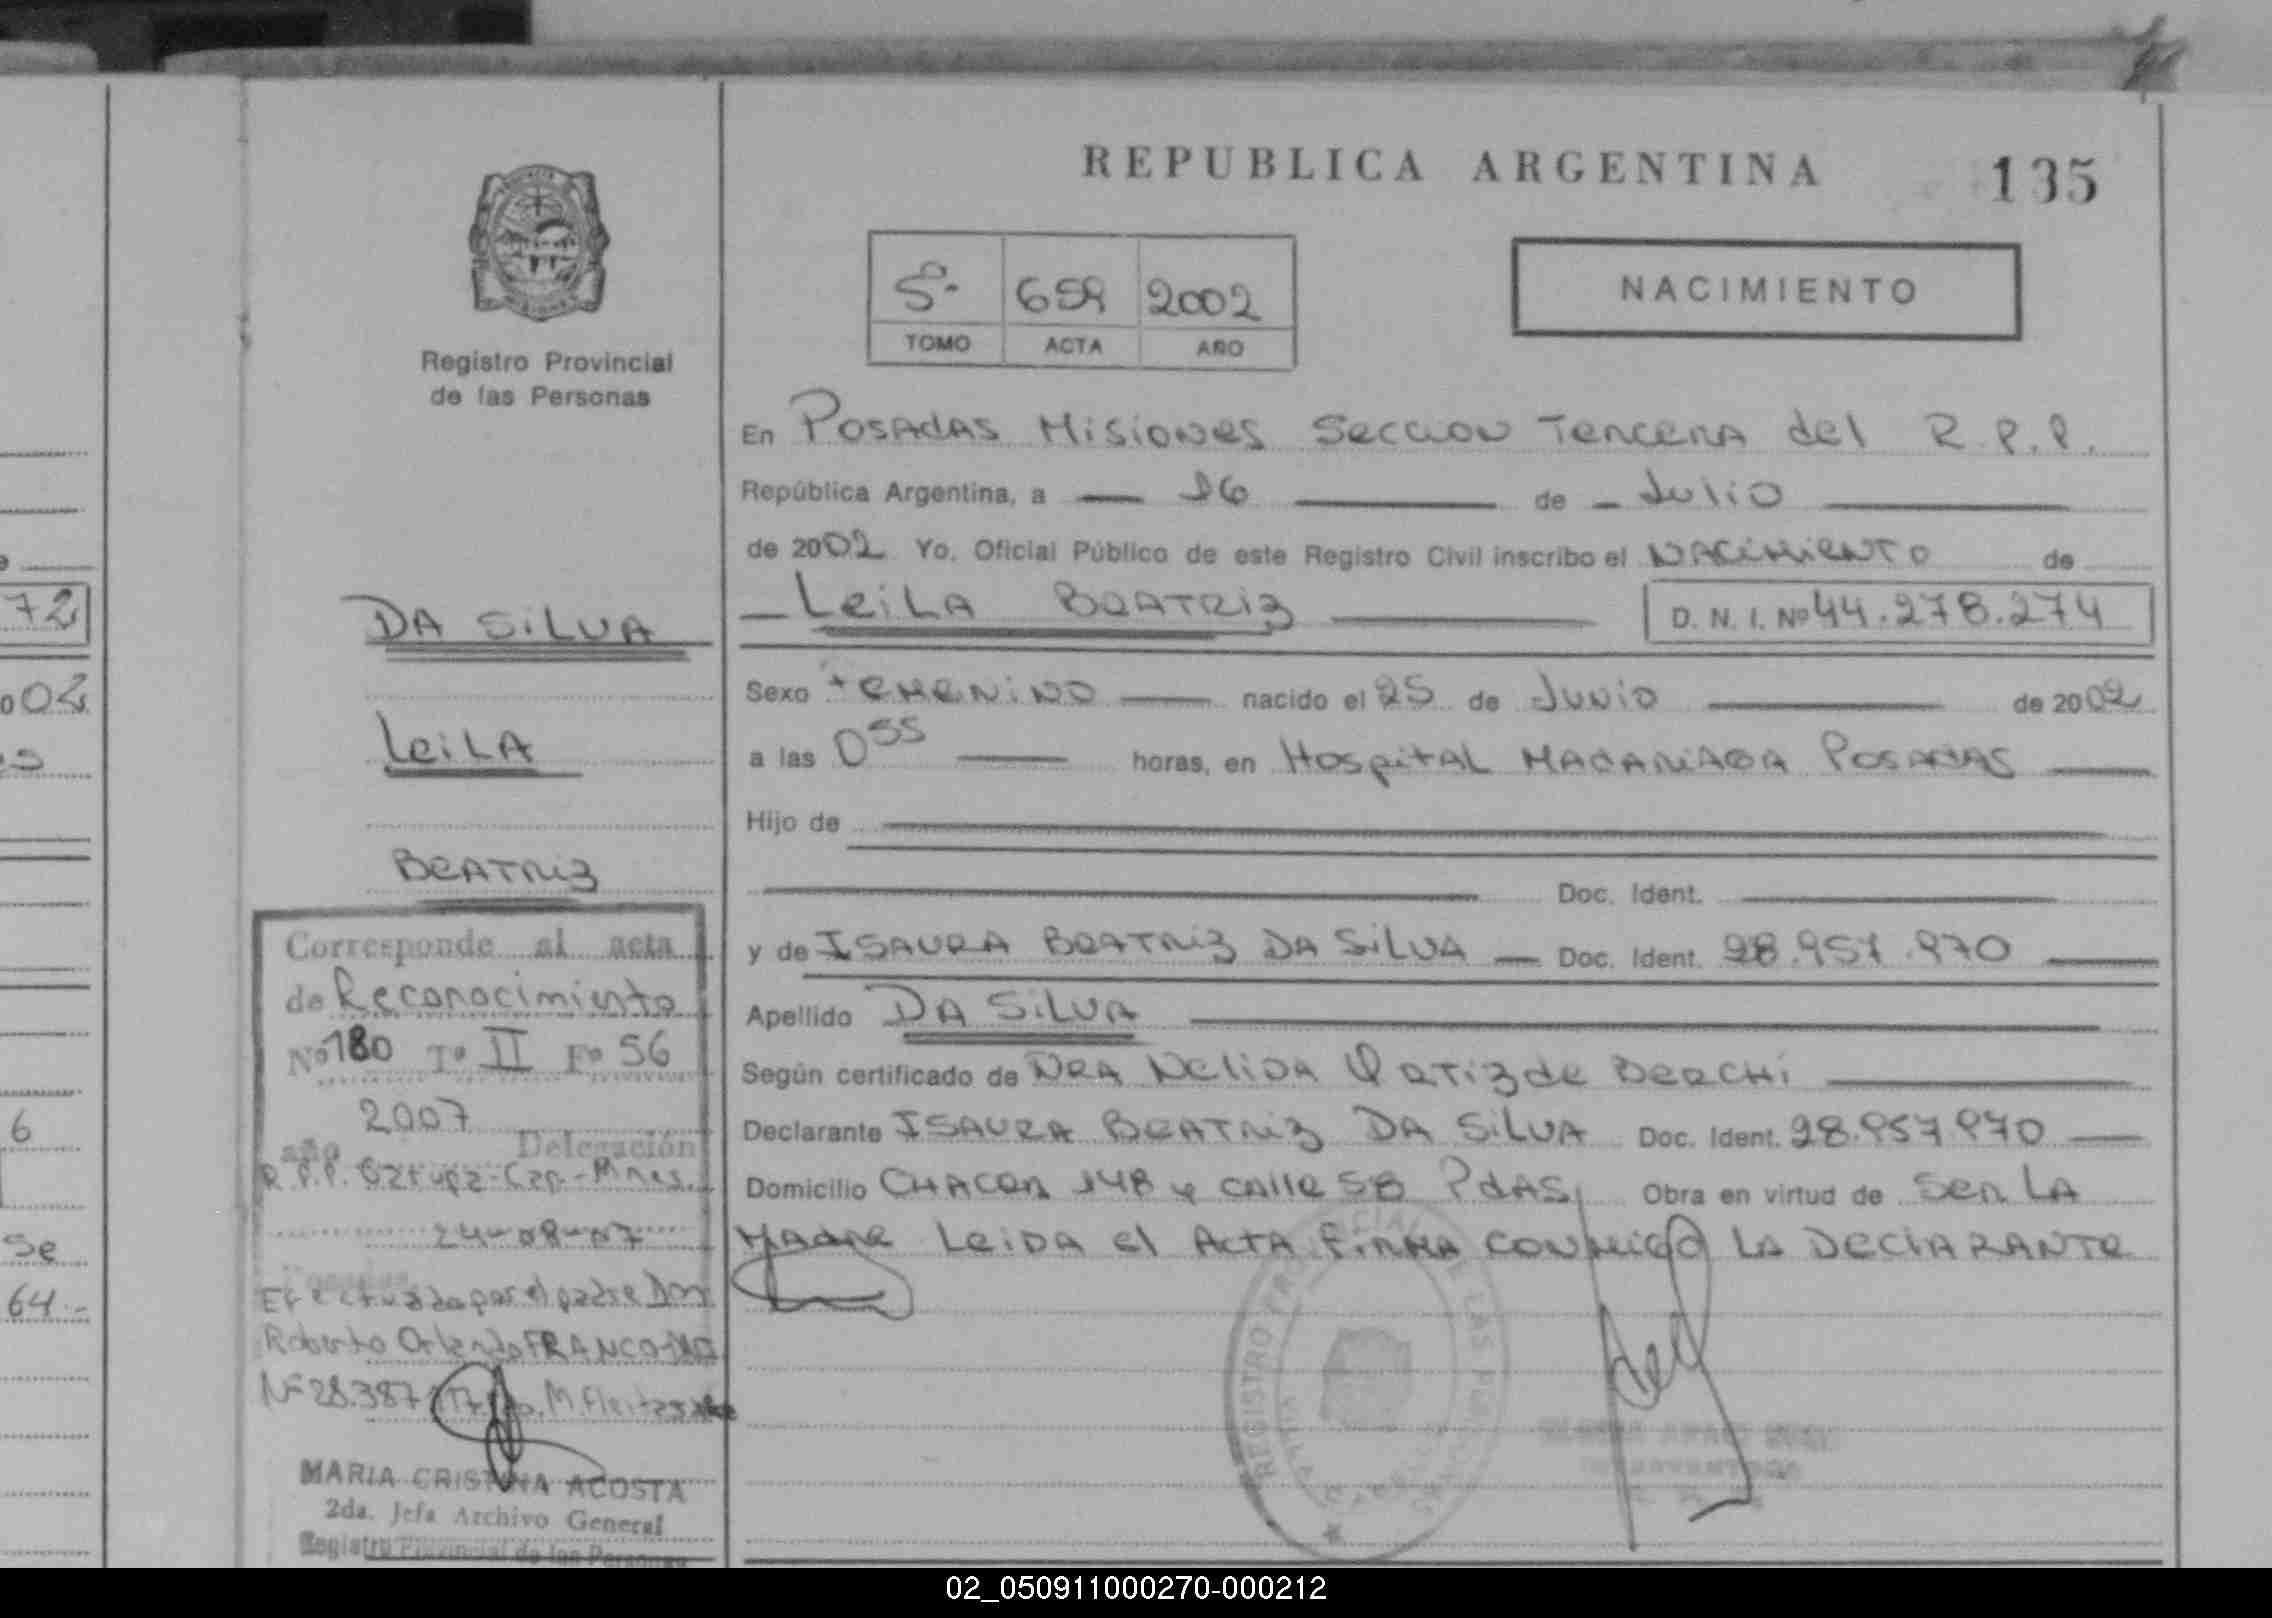 REPUBLICA ARGENTINA 135
5º. 659 2002
TOMO ACTA AÑO
NACIMIENTO
Registro Provincial
de las Personas
En Posadas Misiones Seccion Tercera del R.P.P.
República Argentina, a 16 de Julio
de 2002 Yo, Oficial Público de este Registro Civil inscribo el NACIMIENTO de
Leila BEATRIZ D. N. I. Nº 44.278.274
Sexo Femenino nacido el 25 de Junio de 2002
a las 0 55 horas, en Hospital MADARIAGA Posadas
Hijo de
Doc. Ident.
y de ISAURA BEATRIZ DA SILVA Doc. Ident. 28.957.970
Apellido DA SILVA
Según certificado de DRA Nelida Ortiz de
Declarante ISAURA BEATRIZ DA SILVA Doc. Ident. 28.957970
Domicilio CHACON 148 y calle 58 PdAS Obra en virtud de Ser LA
MADRE Leida el Acta firma conmigo LA DECLARANTE
DA SILVA
LEILA
BEATRIZ
Corresponde al acta
de Reconocimiento
Nº 180 Tº II Fº 56
año 2007 Delegación
R.P.P. Garupa-Cap.-Mnes.
24-08-07
Efectuada por el padre Don
Roberto Orlando FRANCO DNI
Nº 28.387
MARIA CRISTINA ACOSTA
2da. Jefa Archivo General
Registro Provincial de las Personas
REGISTRO PROVINCIAL DE LAS PERSONAS
72
002
6
se
64.-
02_050911000270-000212